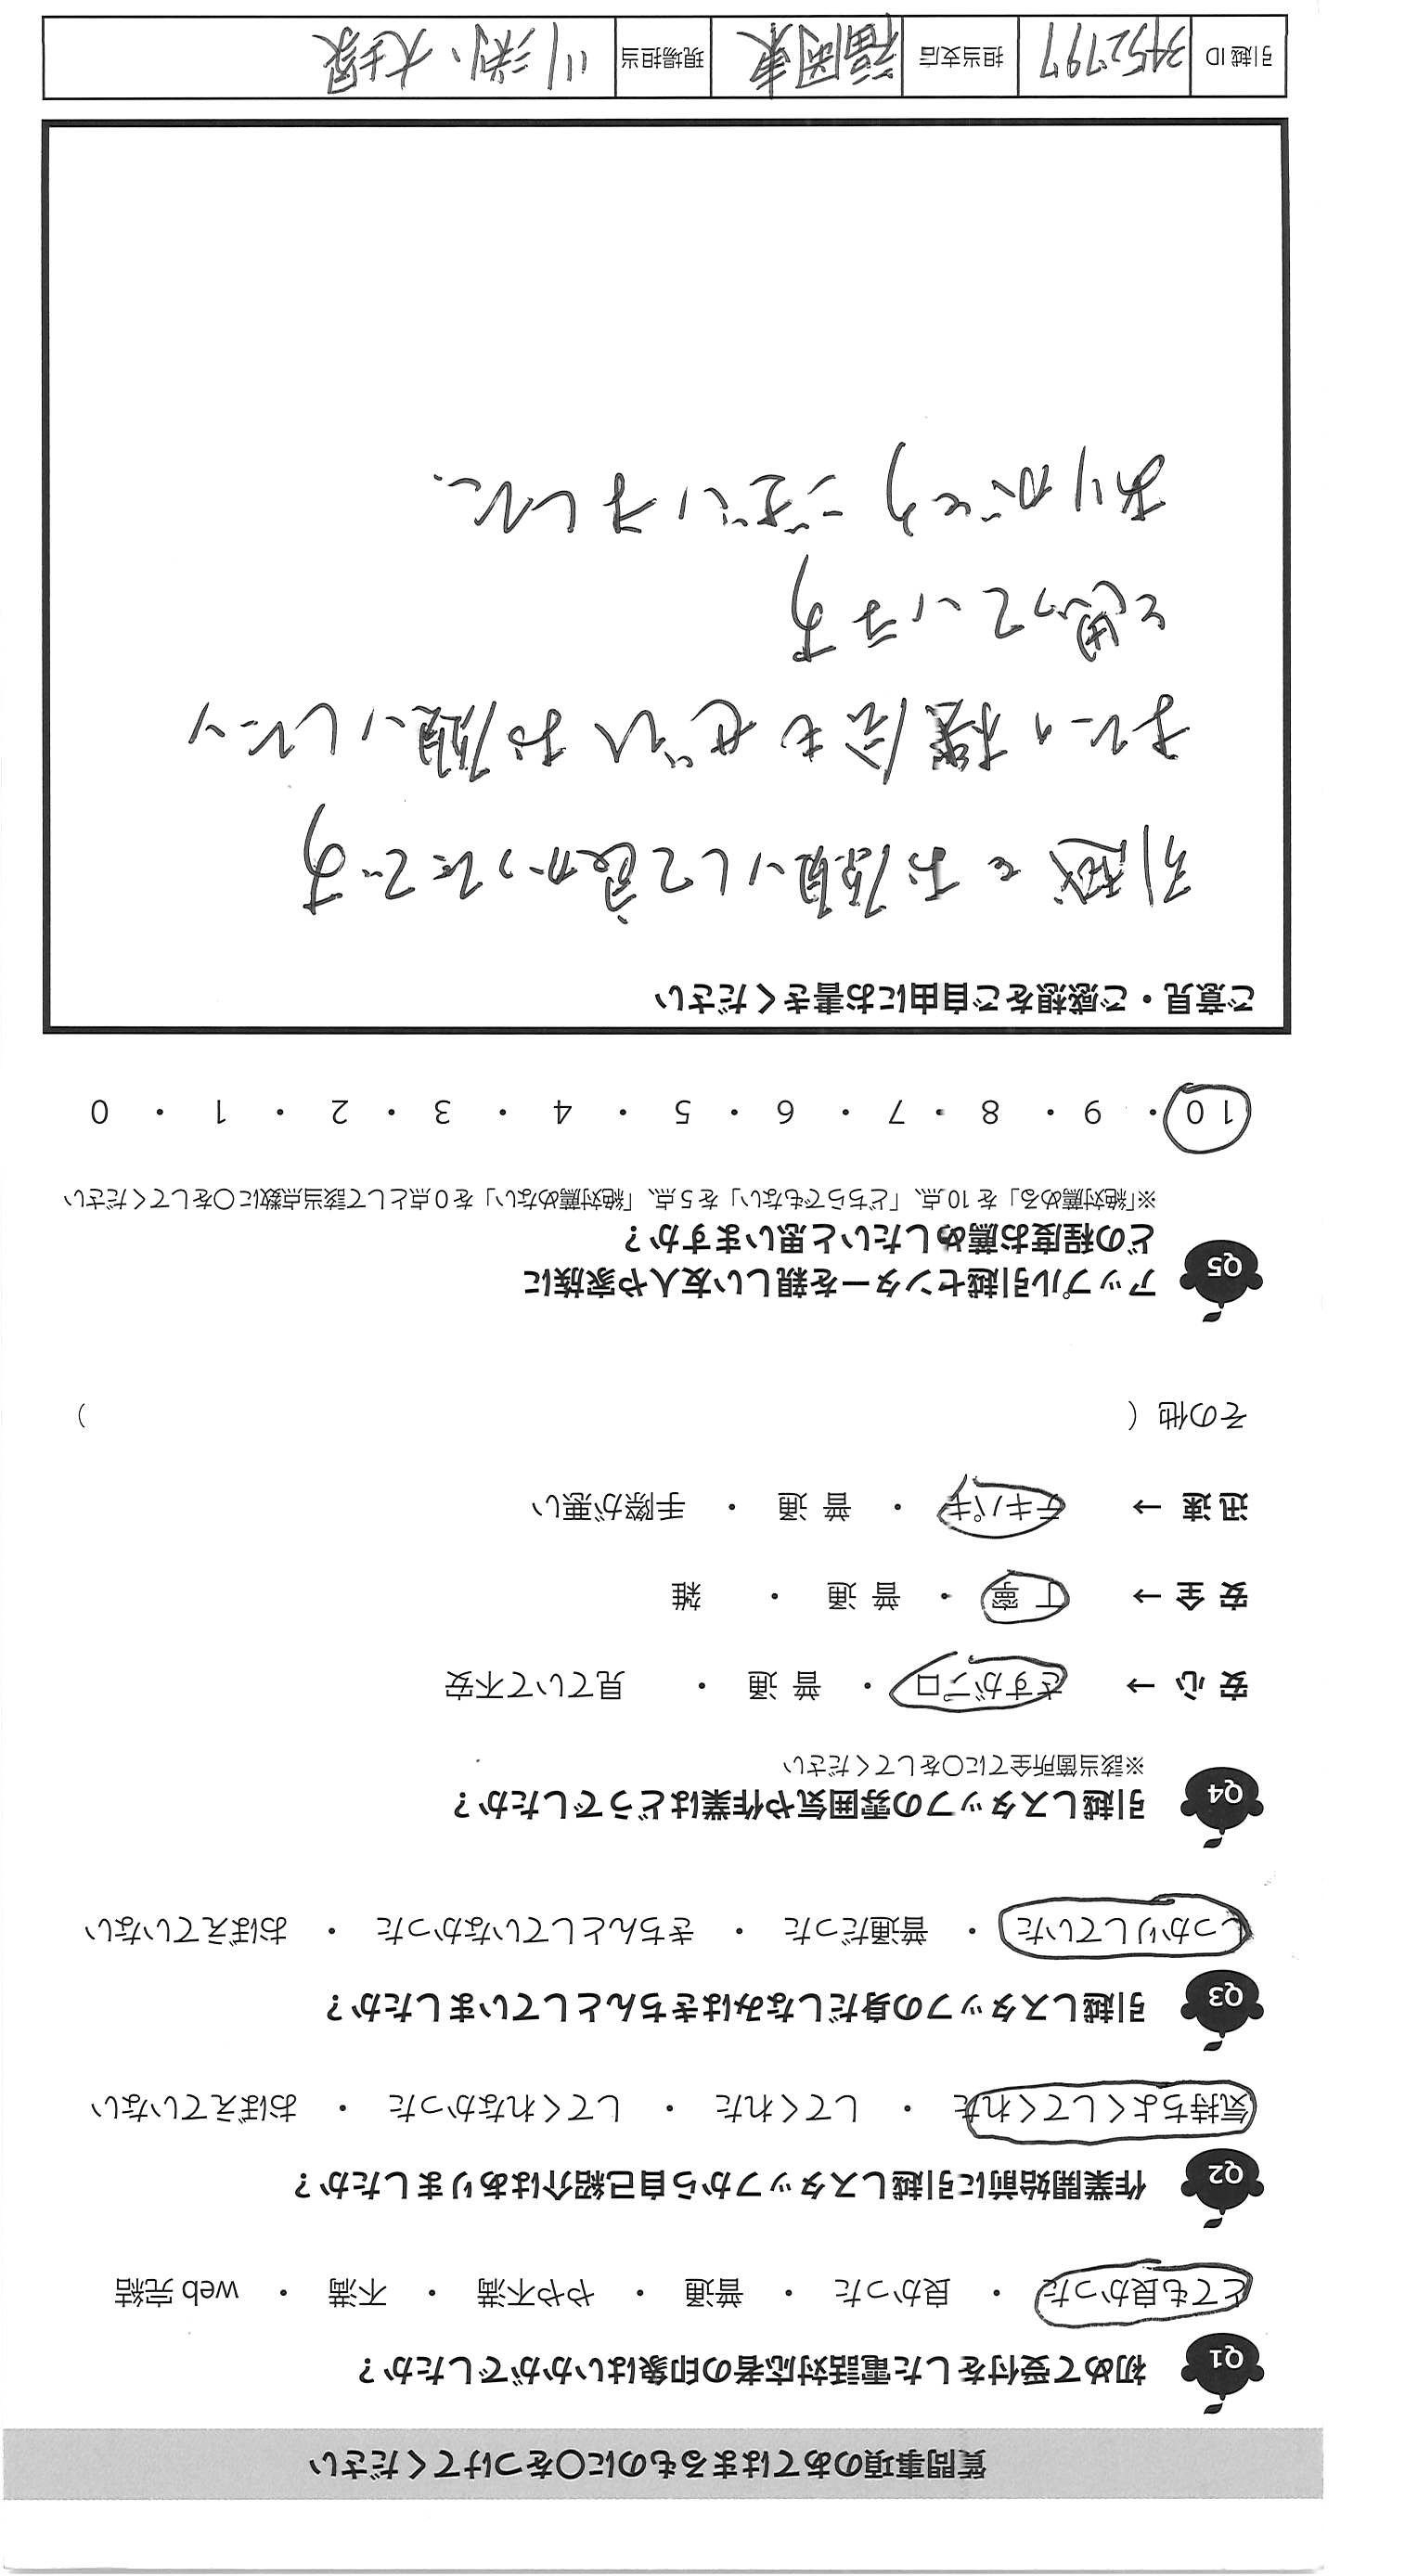 質問事項のあてはまるものに〇をつけてください
Q1 初めて受付をした電話対応者の印象はいかがでしたか？
とても良かった ・ 良かった ・ 普通 ・ やや不満 ・ 不満 ・ web 完結
Q2 作業開始前に引越しスタッフから自己紹介はありましたか？
気持ちよくしてくれた ・ してくれた ・ してくれなかった ・ おぼえていない
Q3 引越しスタッフの身だしなみはきちんとしていましたか？
しっかりしていた ・ 普通だった ・ きちんとしていなかった ・ おぼえていない
Q4 引越しスタッフの雰囲気や作業はどうでしたか？
※該当箇所全てに〇をしてください
安 心 → さすがプロ ・ 普 通 ・ 見ていて不安
安 全 → 丁 寧 ・ 普 通 ・ 雑
迅 速 → テキパキ ・ 普 通 ・ 手際が悪い
その他（ ）
Q5 アップル引越センターを親しい友人や家族に
どの程度お薦めしたいと思いますか？
※「絶対薦める」を 10 点、「どちらでもない」を 5 点、「絶対薦めない」を 0 点として該当点数に〇をしてください
10 ・ 9 ・ 8 ・ 7 ・ 6 ・ 5 ・ 4 ・ 3 ・ 2 ・ 1 ・ 0
ご意見・ご感想をご自由にお書きください
引越をお願いして良かったです
またの機会もぜひお願いしたい
と思っています
ありがとうございました.
引越 ID 3452797 担当支店 福岡東 現場担当 川渕、大塚